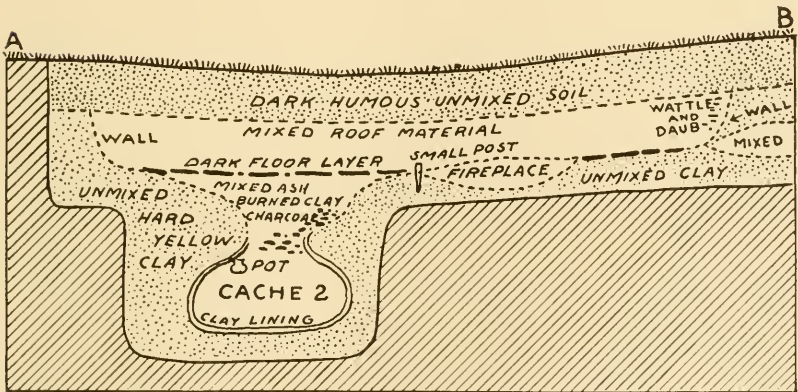 A
B
DARK HUMOUS UNMIXED SOIL
WATTLE
AND
DAUB
WALL
WALL
MIXED ROOF MATERIAL
MIXED
SMALL POST
DARK FLOOR LAYER
FIREPLACE
UNMIXED CLAY
UNMIXED
HARD
YELLOW
CLAY
MIXED ASH
BURNED CLAY
CHARCOAL
POT
CACHE 2
CLAY LINING